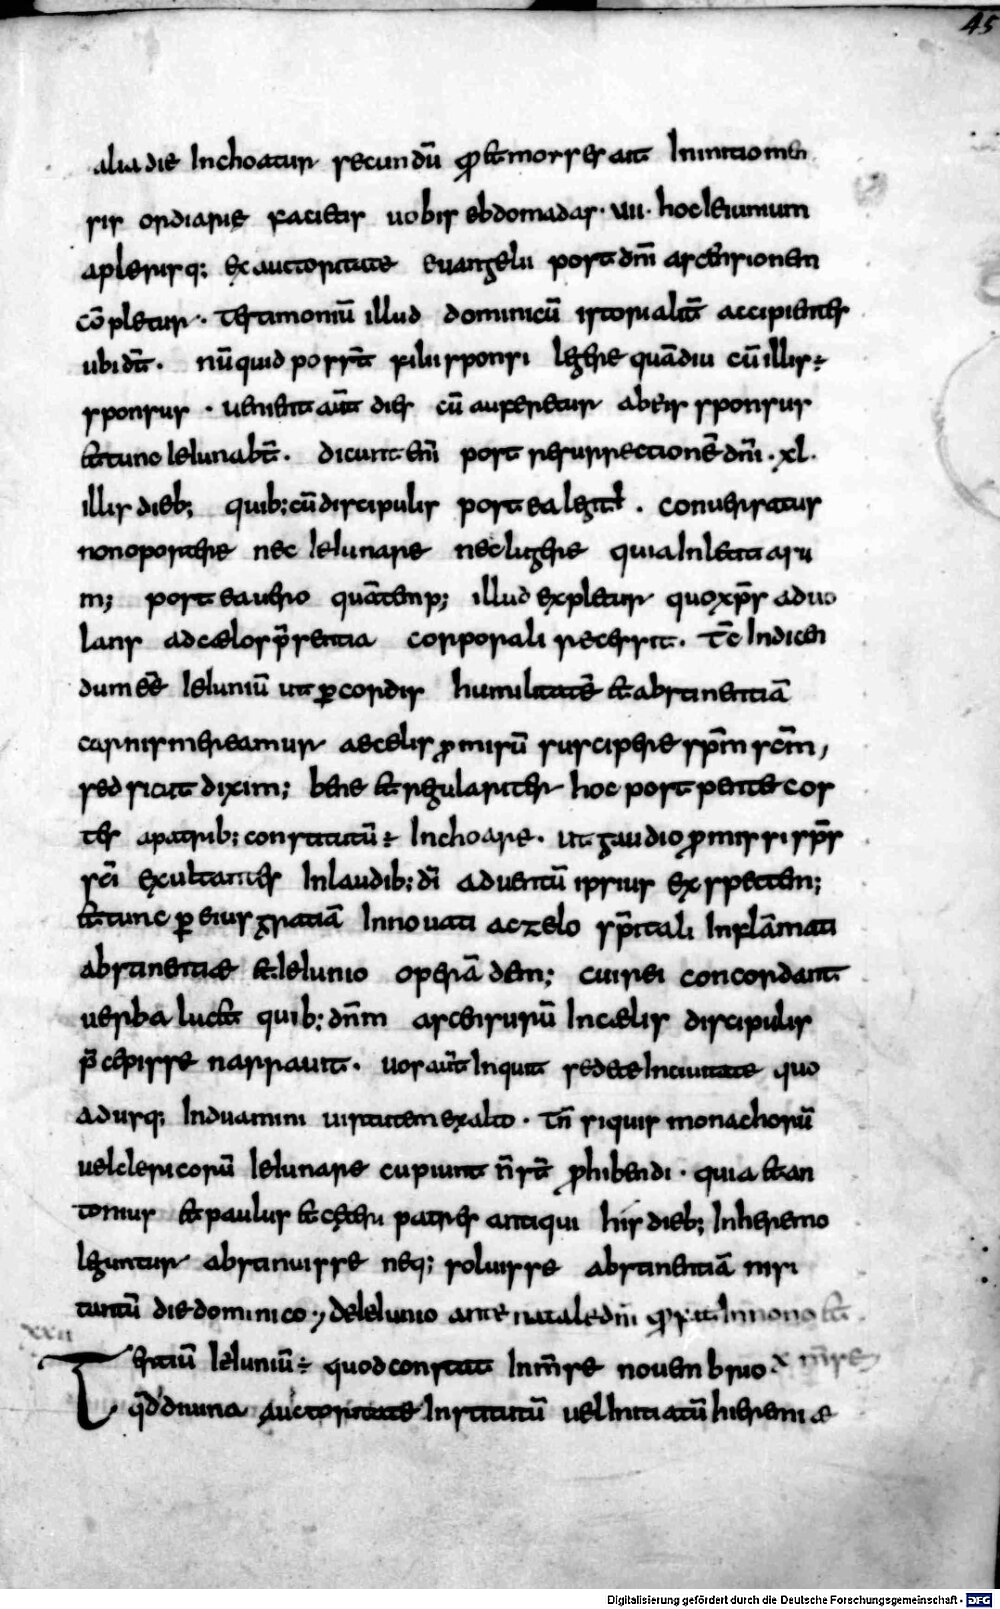 45
alia die Inchoatur secundū q̄ et morses ait In initio men
sis ordiarie facietis uobis ebdomadas · VII · hoc Ieiumum
aplerisq; ex auctoritate euangelii post dn̄i ascensionem
cōpletur · testimoniū illud dominicū istorialit̄ accipientes
ubi dt̄ · nūquid posst̄ filii sponsi legere quādiu cū illis ÷
sponsus · uenient aūt dies cū auferetur ab eis sponsus
et tunc Ieiunabt̄ · dicunt eni̅ post resurrectionē dn̄i · xl ·
illis dieb; quib; cū discipulis post ea legit̄ · conuersatur
non oportere nec Ieiunare nec lugere quia In letitia su
m; post ea uero quā temp; illud expletur quo xp̄s aduo
lans ad cælos p̄sentia corporali recessit · Tc̄ Indicen
dum eē Ieiuniū ut ꝑ cordis humilitatē et abstinentiā
carnis mereamur a celis ꝓmisū suscipere sp̄m sc̄m,
sed sicut dixim; bene et regulariter hoc post pentecos
tes a patrib; constitutū ÷ Inchoare · ut gaudio ꝓmissi sp̄s
sc̄i exultantes In laudib; dī aduentū ipsius exspectem;
et tunc ꝑ eius gratiā Innouati ac zelo sp̄itali Inflāmati
abstinentiæ et Ieiunio operā dem; cui rei concordant
uerba lucæ quib; dn̄m ascensurū In cælis discipulis
p̄cepisse narrauit · uos aūt Inquit sedete In ciuitate quo
adusq; Induamini uirtutem ex alto · Tn̄ si quis monachorū
uel clericorū Ieiunare cupiunt n̄ st̄ ꝓhibendi · quia et an
tonius et paulus et ceteri patres antiqui his dieb; In heremo
leguntur abstinuisse neq; soluisse abstinentiā nisi
tantū die dominico ·, de Ieiunio ante natale dn̄i In nono et
xxii
Tertiū Ieiuniū ÷ quod constat In m̄se nouenbrio x m̄se
qd̄ diuina auctoritate Institutū uel Initiatū hieremiæ
Digitalisierung gefördert durch die Deutsche Forschungsgemeinschaft - DFG